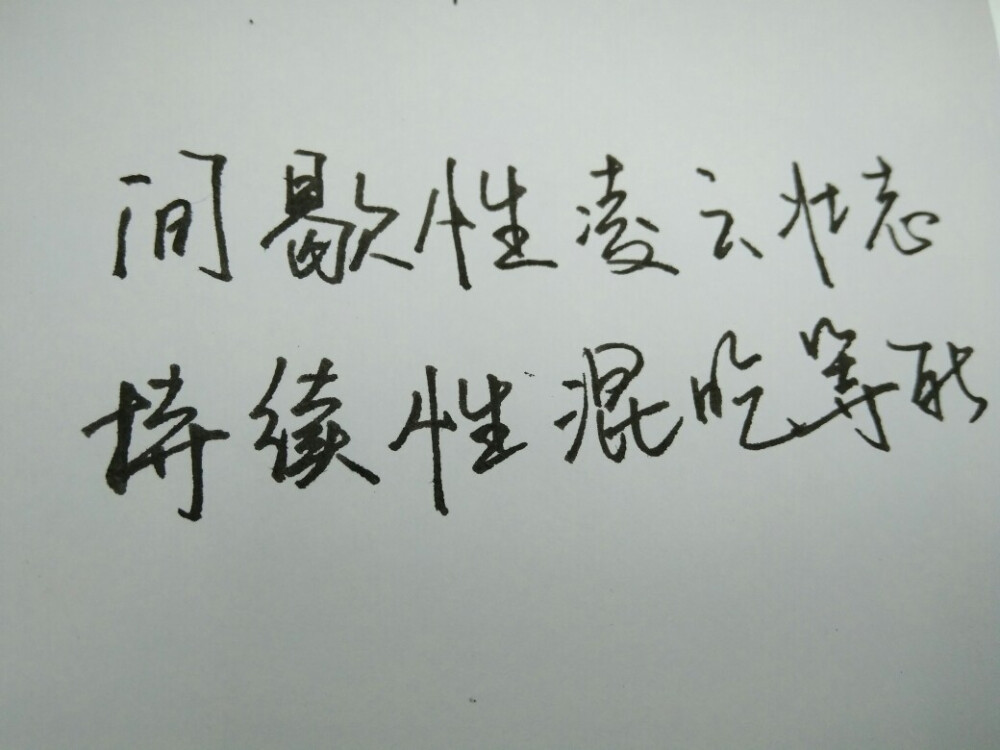 间歇性凌云壮志
持续性混吃等死